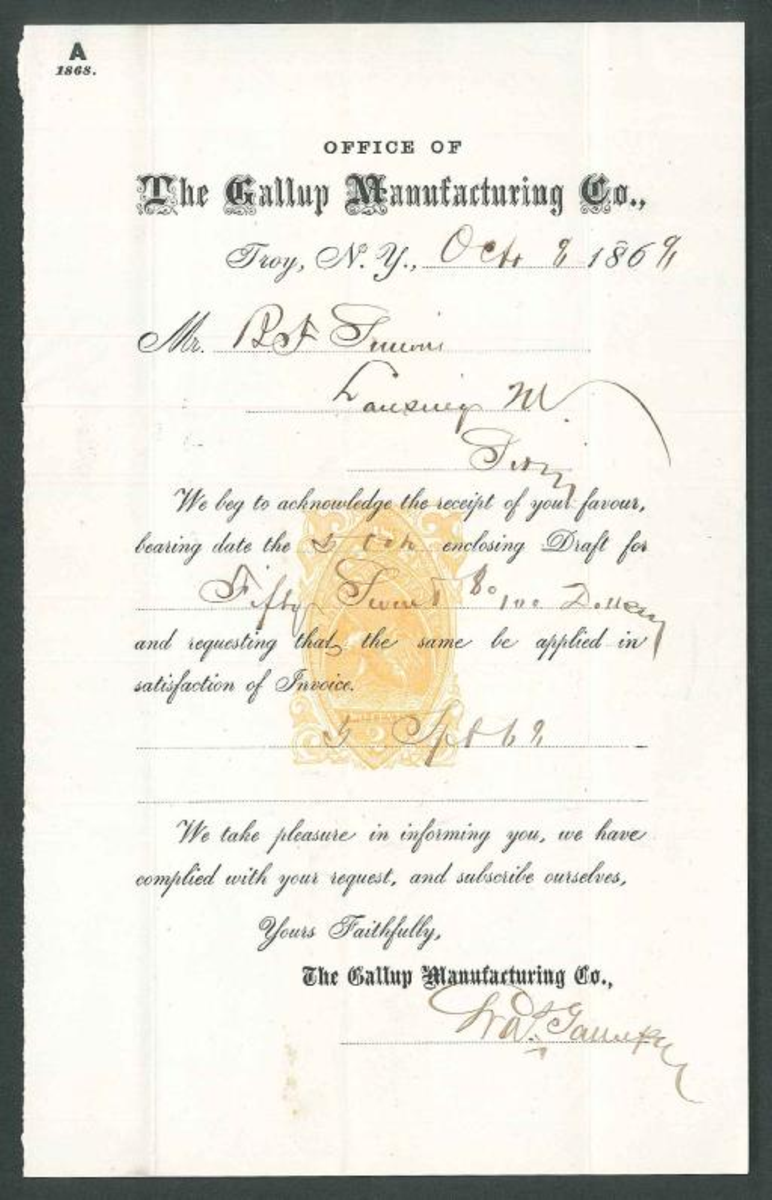 A
1868.
OFFICE OF
The Gallup Manufacturing Co.,
Troy, N. Y., Oct. 8 1869
Mr. B F Simons
Lansing M
We beg to acknowledge the receipt of your favour,
bearing date the 5 enclosing Draft for
Fifty Seven 80/100 Dollars
and requesting that the same be applied in
satisfaction of Invoice.
5 Spt 69
We take pleasure in informing you, we have
complied with your request, and subscribe ourselves,
Yours Faithfully,
The Gallup Manufacturing Co.,